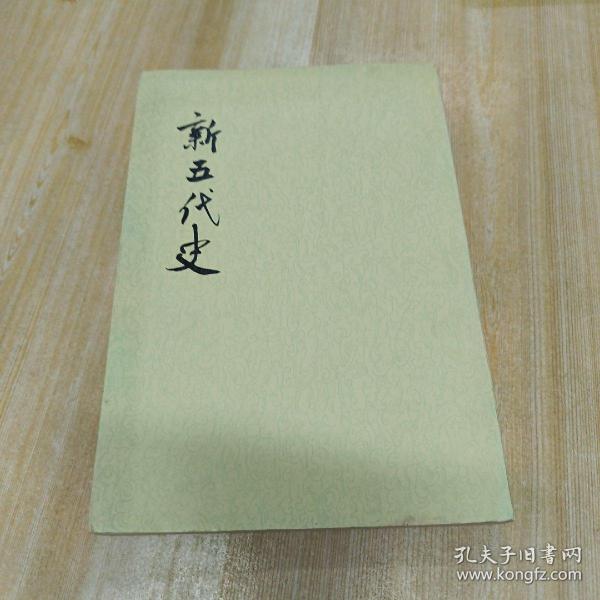 新五代史
孔夫子旧书网
www.kongfz.com